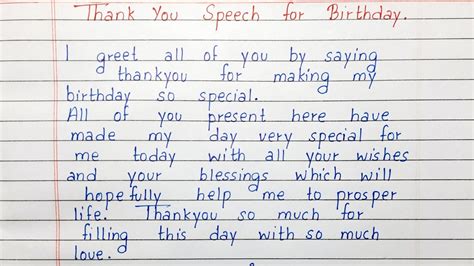 Thank You Speech for Birthday.
I greet all of you by saying
thankyou for making my
birthday so special.
All of you present here have
made my day very special for
me today with all your wishes
and your blessings which will
hopefully help me to prosper
life. Thankyou so much for
filling this day with so much
love.